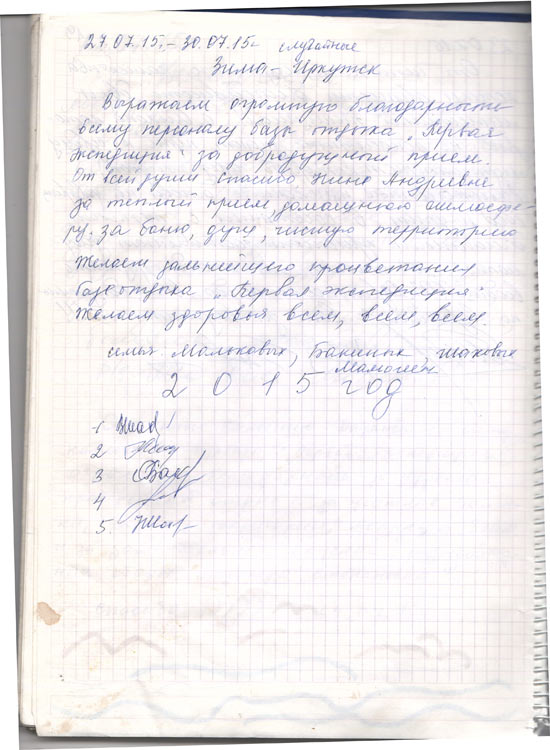 27.07.15.-30.07.15г случайные
Зима - Иркутск
Выражаем огромную благодарность
всему персоналу базы отдыха "Первая
экспедиция" за добродушный прием.
От всей души спасибо Нине Андреевне
за теплый прием, домашнюю атмосфе-
ру. за баню, душ, чистую территорию
Желаем дальнейшего процветания
базе отдыха "Первая экспедиция"
Желаем здоровья всем, всем, всем.
семья Мальковых, Бакиных, Шаховых
2015 год
1
2
3
4
5.